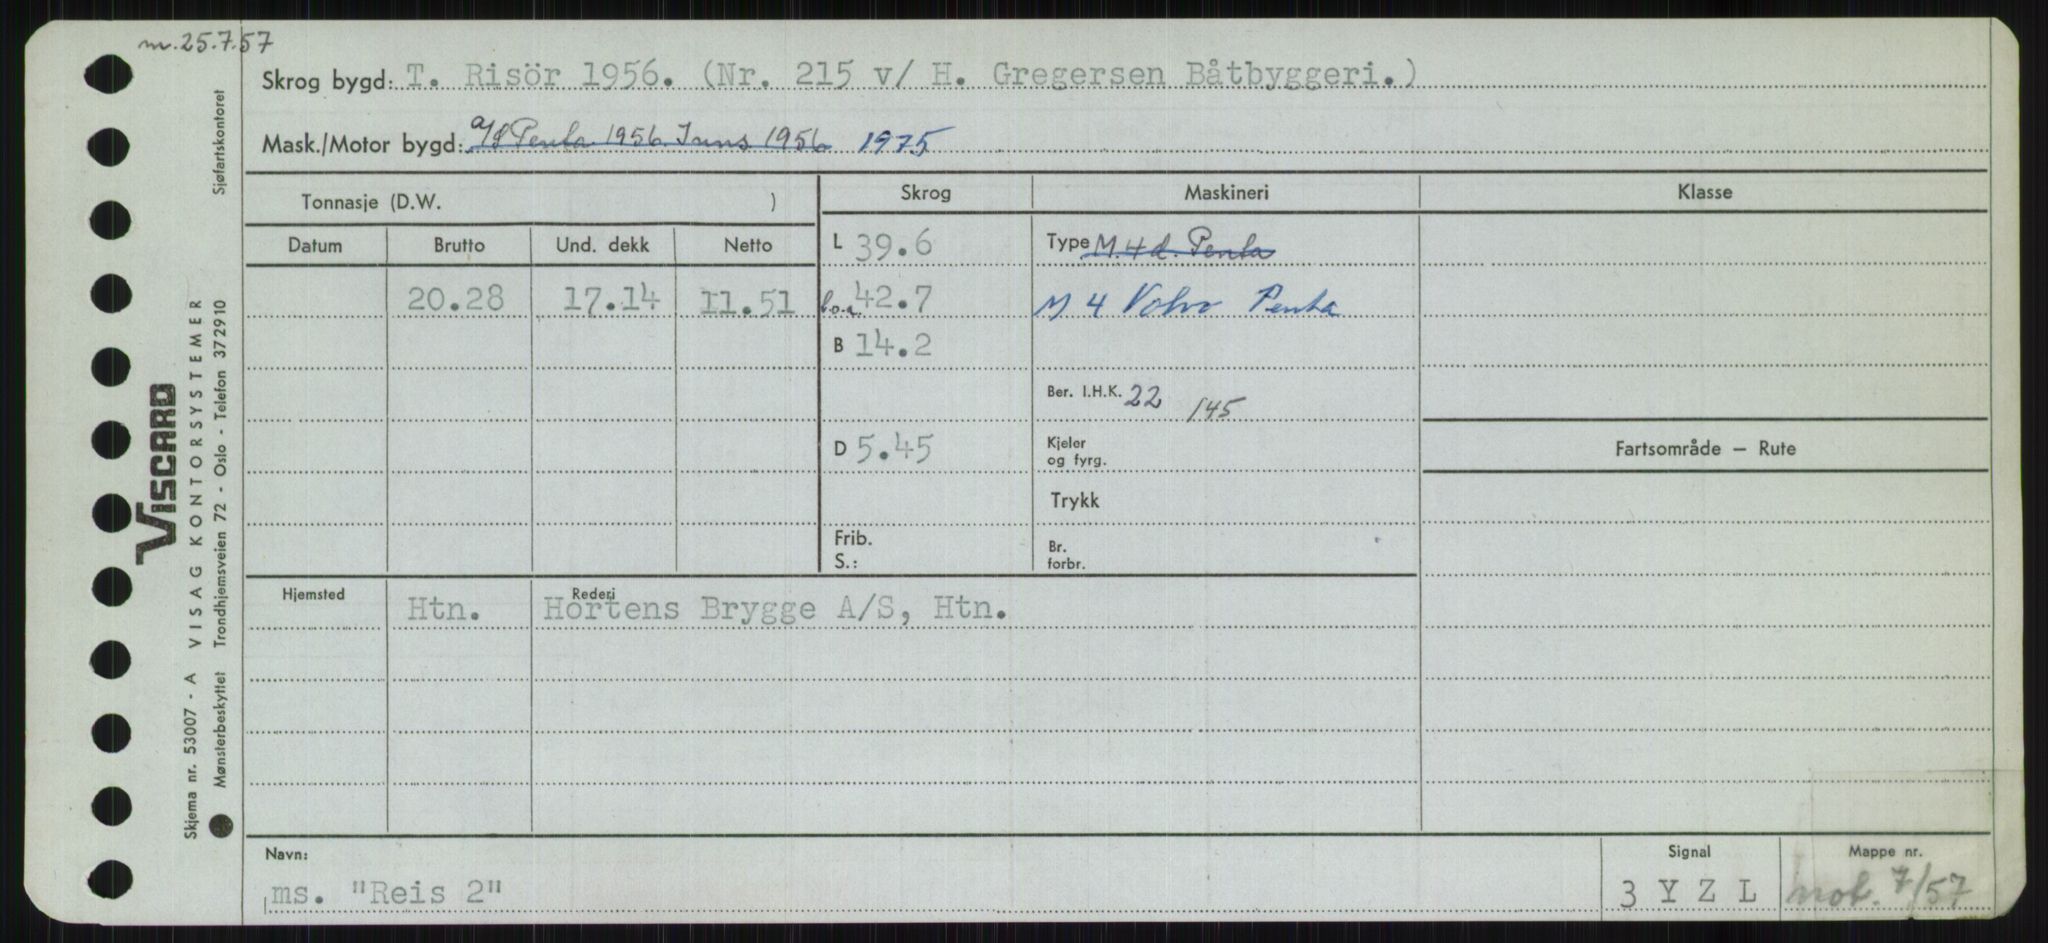 m. 25.7.57
Skrog bygd: T. Risör 1956. (Nr. 215 v/ H. Gregersen Båtbyggeri.)
Mask./Motor bygd: a/s Penta 1956 1956 1975
Tonnasje (D.W. )
Skrog Maskineri Klasse
Datum Brutto Und. dekk Netto
L 39.6 Type M. 4 d. Penta
20.28 17.14 11.51 b.o.a. 42.7 M 4 Volvo Penta
B 14.2
Ber. I.H.K. 22 145
D 5.45 Kjeler og fyrg.
Fartsområde – Rute
Trykk
Frib.
S.:
Br. forbr.
Hjemsted Htn. Rederi Hortens Brygge A/S, Htn.
Navn: Signal Mappe nr.
ms. "Reis 2" 3 Y Z L not. 7/57
Sjøfartskontoret
VISCARD
Skjema nr. 53007 - A VISAG KONTORSYSTEMER
Mønsterbeskyttet Trondhjemsveien 72 - Oslo - Telefon 372910